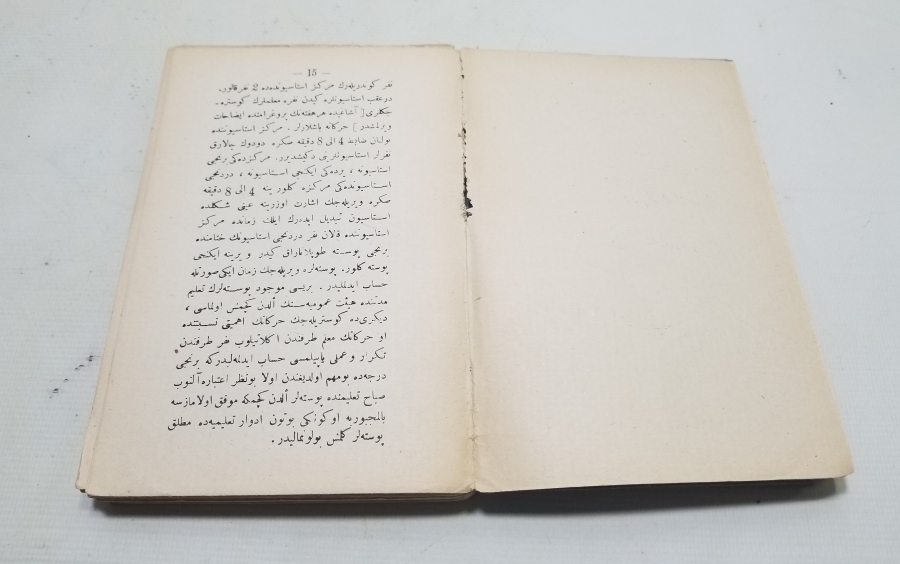 — 15 —
نفر كوندريله‌رك مركز استاسيوننده‌ده 2 نفر قالور.
درعقب استاسيونلره كيدن نفره معلملرك كوستره -
جكلرى [ آشاغيده هر هفته‌نك پروغرامنده ايضاحات
ويرلمشدر ] حركاته باشلارلر . مركز استاسيوننده
بولنان ضابط 4 الى 8 دقيقه صكره دودوك چالارق
نفرلر استاسيونلرينى دكيشديرر. مركزده‌كى برنجى
استاسيونه ، برده‌كى ايكنجى استاسيونه ، دردنجى
استاسيونده‌كى مركزه كلور ينه 4 الى 8 دقيقه
صكره ويريله‌جك اشارت اوزرينه عينى شكلده
استاسيون تبديل ايده‌رك ايلك زمانده مركز
استاسيوننده قالان نفر دردنجى استاسيونك ختامنده
برنجى پوسته طوپلاناراق كيدر و يرينه ايكنجى
پوسته كلور. پوسته‌لره ويريله‌جك زمان ايكى صورتله
حساب ايدلمليدر . بريسى موجود پوسته‌لرك تعليم
مدتنده هيئت عموميه‌سنك ألدن كچمش اولماسى ،
ديكرى‌ده كوستريله‌جك حركاتك اهميتى نسبتنده
او حركاتك معلم طرفندن اكلاتيلوب نفر طرفندن
تكرار و عملى ياپيلمسى حساب ايدلمه‌ليدركه برنجى
درجه‌ده مهم اولديغندن اولا بونظر اعتباره آلنوب
صباح تعليمنده پوسته‌لر ألدن كچمكه موفق اولامازسه
بالمجبوريه اوكونكى بوتون ادوار تعليميه‌ده مطلق
پوسته‌لر كلمش بولونماليدر .